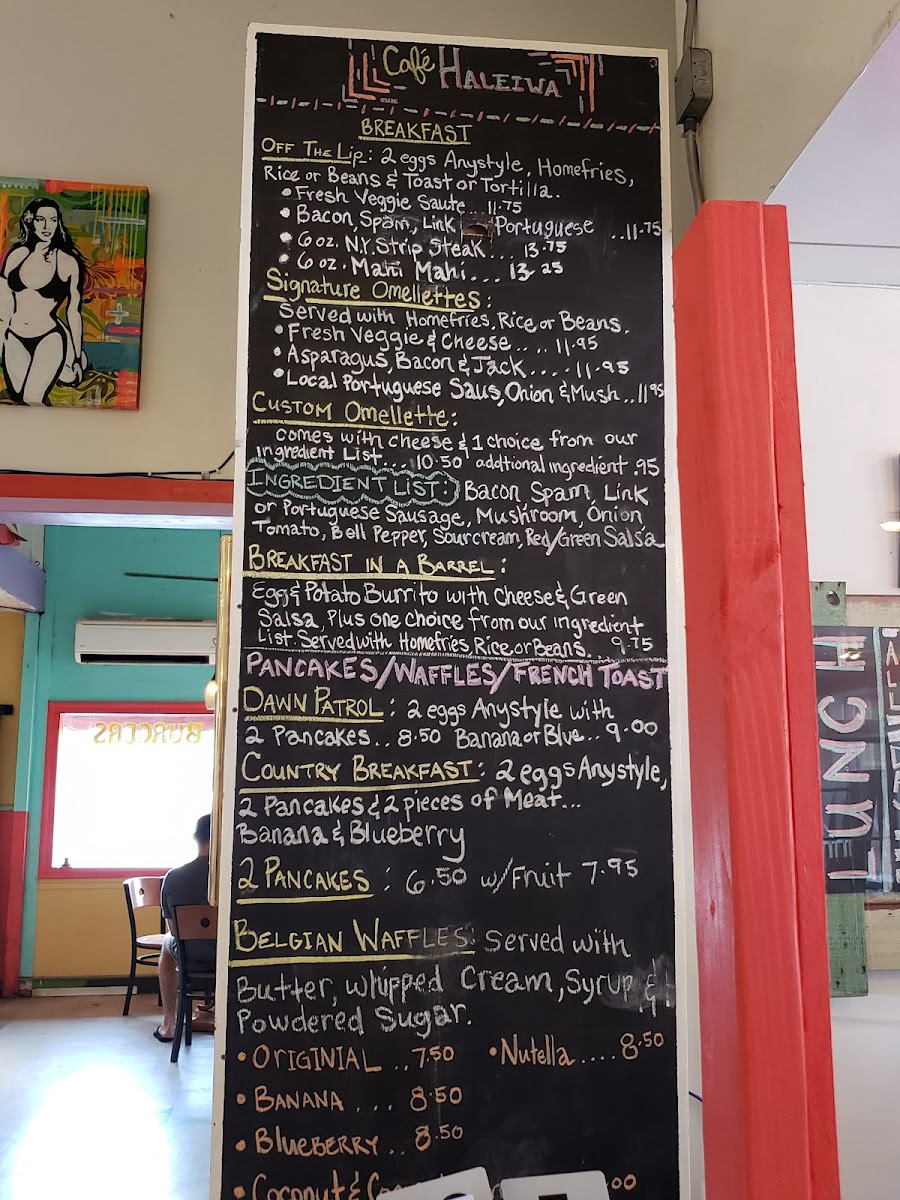 Café HALEIWA
BREAKFAST
OFF THE LIP: 2 eggs Anystyle, Homefries,
Rice or Beans & Toast or Tortilla.
• Fresh Veggie Saute.. 11.75
• Bacon, Spam, Link Portuguese ..11.75
• 6 oz. N.Y. Strip Steak... 13.75
• 6 oz. Mahi Mahi... 13.25
Signature Omellettes:
Served with Homefries, Rice or Beans.
• Fresh Veggie & Cheese.... 11.95
• Asparagus, Bacon & Jack.....11.95
• Local Portuguese Saus, Onion & Mush..11.95
CUSTOM Omellette:
comes with cheese & 1 choice from our
ingredient List... 10.50 addtional ingredient .95
INGREDIENT LIST: Bacon Spam, Link
or Portuguese Sausage, Mushroom, Onion
Tomato, Bell Pepper, Sourcream, Red/Green Salsa
BREAKFAST IN A BARREL:
Egg & Potato Burrito with Cheese & Green
Salsa, Plus one choice from our ingredient
List. Served with Homefries, Rice or Beans... 9.75
PANCAKES/WAFFLES/FRENCH TOAST
DAWN PATROL: 2 eggs Anystyle with
2 Pancakes.. 8.50 Banana or Blue.. 9.00
COUNTRY BREAKFAST: 2 eggs Anystyle,
2 Pancakes & 2 pieces of Meat...
Banana & Blueberry
2 PANCAKES: 6.50 w/Fruit 7.95
BELGIAN WAFFLES: Served with
Butter, whipped Cream, Syrup &
Powdered Sugar.
• ORIGINIAL .. 7.50 • Nutella .... 8.50
• BANANA ... 8.50
• BLUEBERRY .. 8.50
• Coconut &
BURGERS
LUNCH
ALL